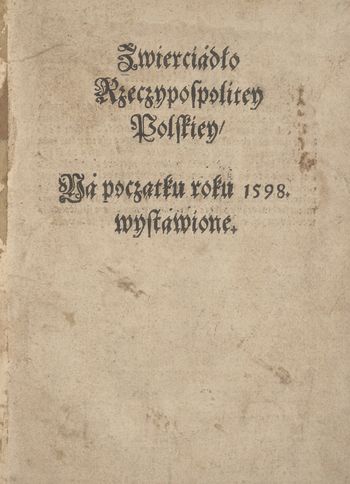 Zwierciádło
Rzeczypospolitey
Polskiey/
Ná początku roku 1598.
wystáwione.